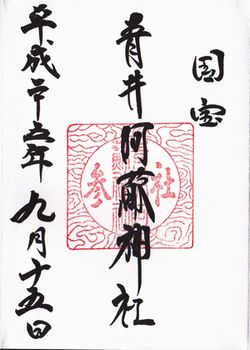 国宝
青井阿蘇神社
参社
平成二十五年九月十五日